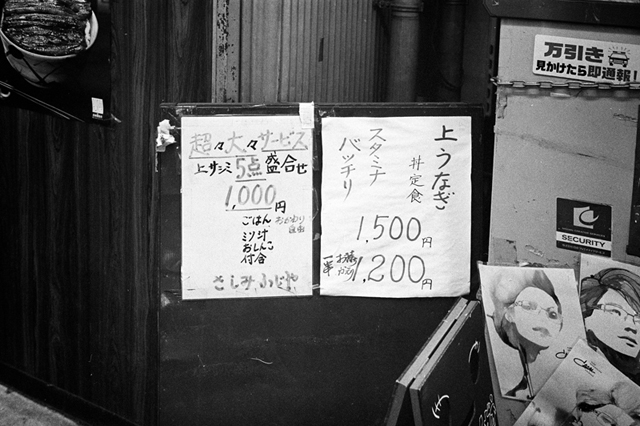 超々大々サービス
上サシミ5点盛合せ
1,000円
ごはん おかわり自由
ミソ汁
おしんこ
付合
さしみ ふじや
上うなぎ
丼定食
スタミナ
バッチリ
1,500円
1,200円
万引き
見かけたら即通報!
SECURITY